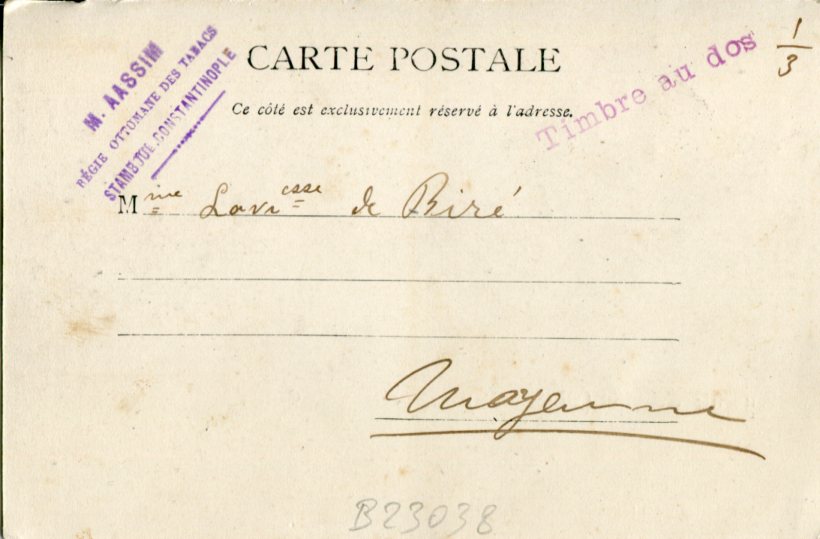 M. AASSIM
RÉGIE OTTOMANE DES TABACS
STAMBOUL-CONSTANTINOPLE
CARTE POSTALE
Ce côté est exclusivement réservé à l'adresse.
Timbre au dos
1/3
Mme de Biré
Mayenne
B23038